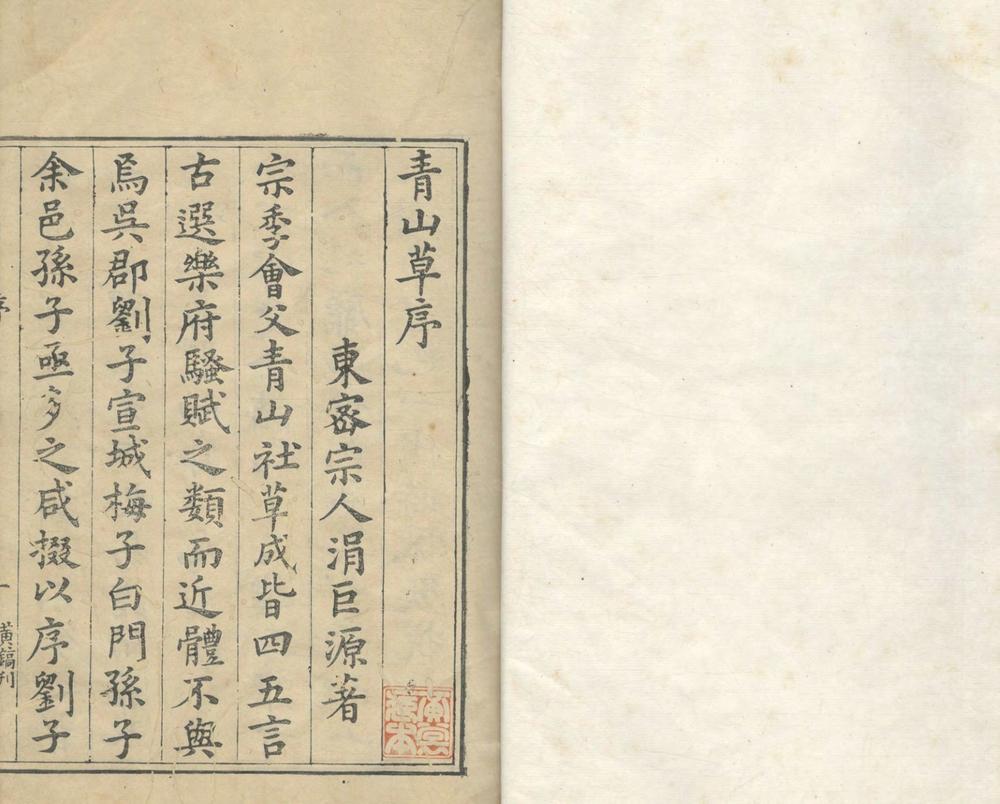 青山草序
東密宗人涓巨源著
宗季會父青山社草成皆四五言
古選樂府騷賦之類而近體不與
焉吳郡劉子宣城梅子白門孫子
余邑孫子亟多之咸掇以序劉子
序
一
黃鎬刊